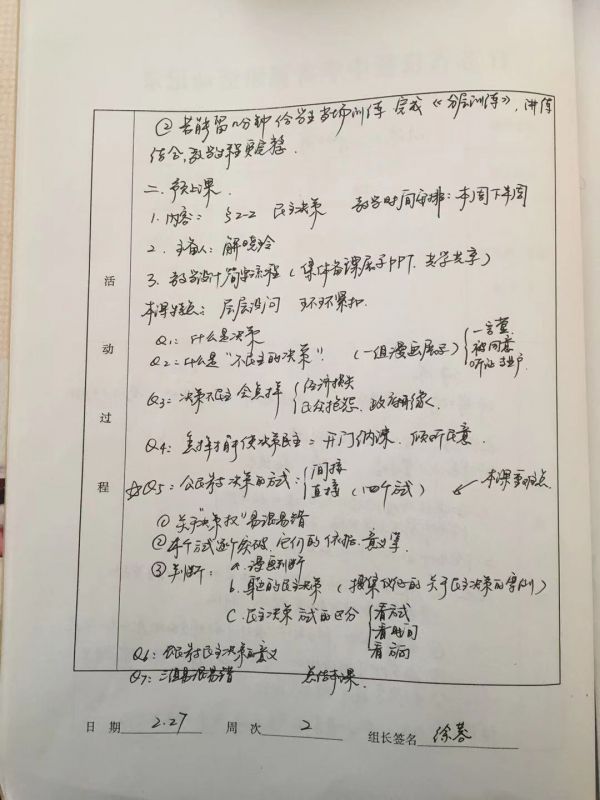 ② 若能留几分钟给学生当场训练 完成《分层训练》，讲练
结合，教学过程更完整.
二. 预上课.
1. 内容： §2-2 民主决策 教学时间安排：本周下半周
2. 主备人：解晓玲
3. 教学设计简单流程（集体备课展示PPT. 共学共享）
本课特点：层层设问 环环紧扣.
Q1：什么是决策
Q2：什么是“不民主的决策”. （一组漫画展示）
一言堂.
被同意
听证专业户.
Q3：决策不民主会怎样
经济损失
民众抱怨. 政府形像.
Q4：怎样才能使决策民主：开门纳谏. 倾听民意.
☆Q5：公民参与决策的方式：
间接
直接（四个方式）
↙ 本课重难点
① 关于“决策权”易混易错
② 4个方式逐个突破. 它们的依据. 意义等.
③ 判断： a. 漫画判断
b. 身边的民主决策（搜集仪征的关于民主决策的案例）
C. 民主决策方式的区分
看方式
看时间
看方向
Q6：公民参与民主决策的意义
Q7：易混易错 总结本课.
活
动
过
程
日 期 2.27 周 次 2 组长签名 徐